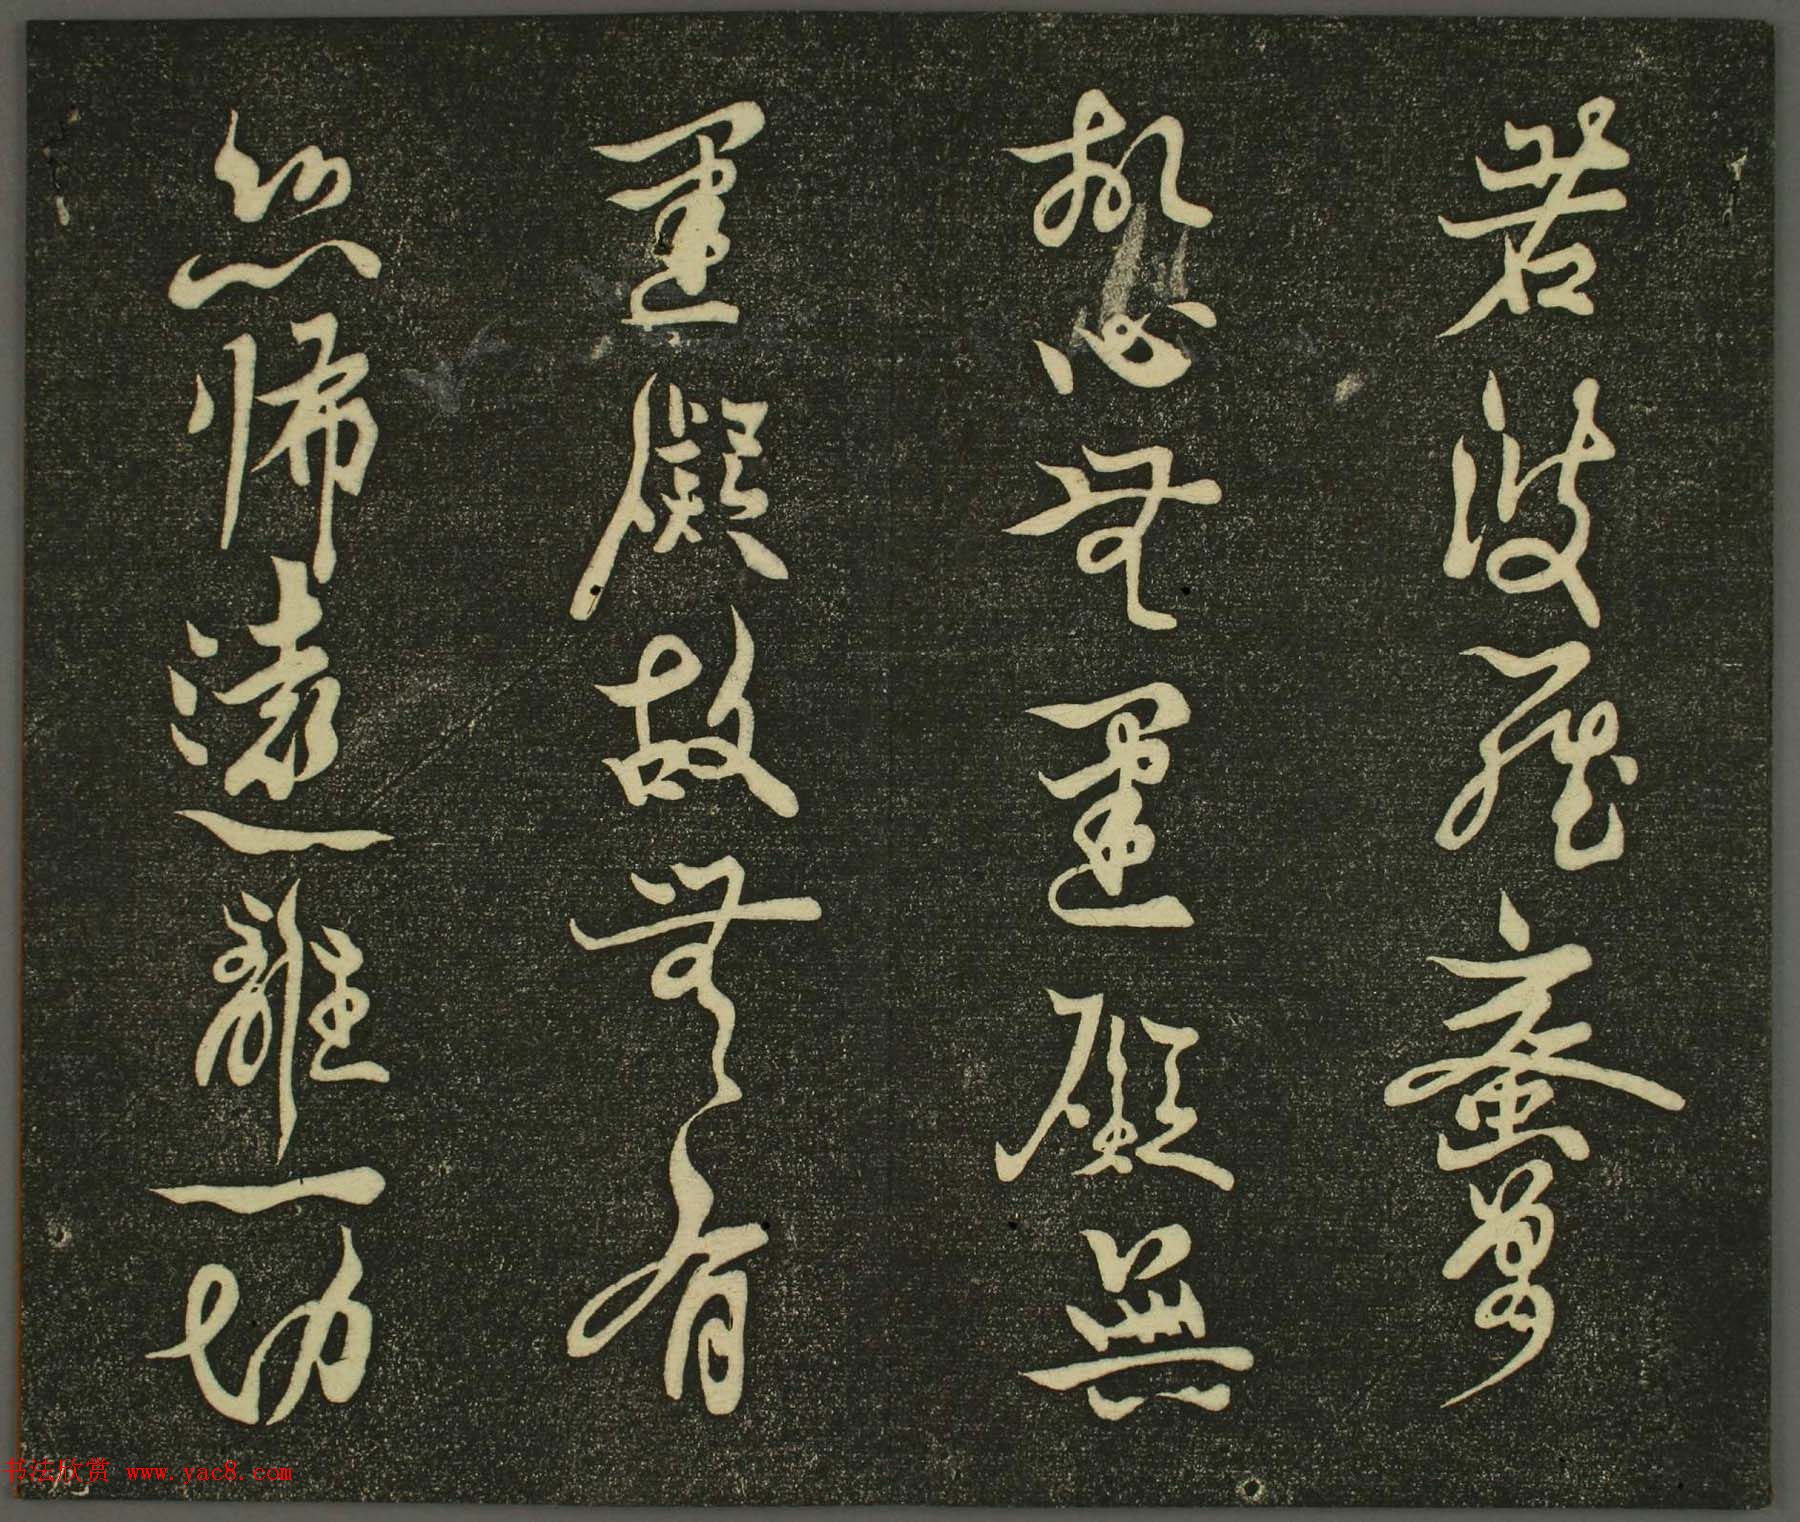 若波羅蜜多
故心無罣礙無
罣礙故無有
恐怖遠離一切
书法欣赏 www.yac8.com